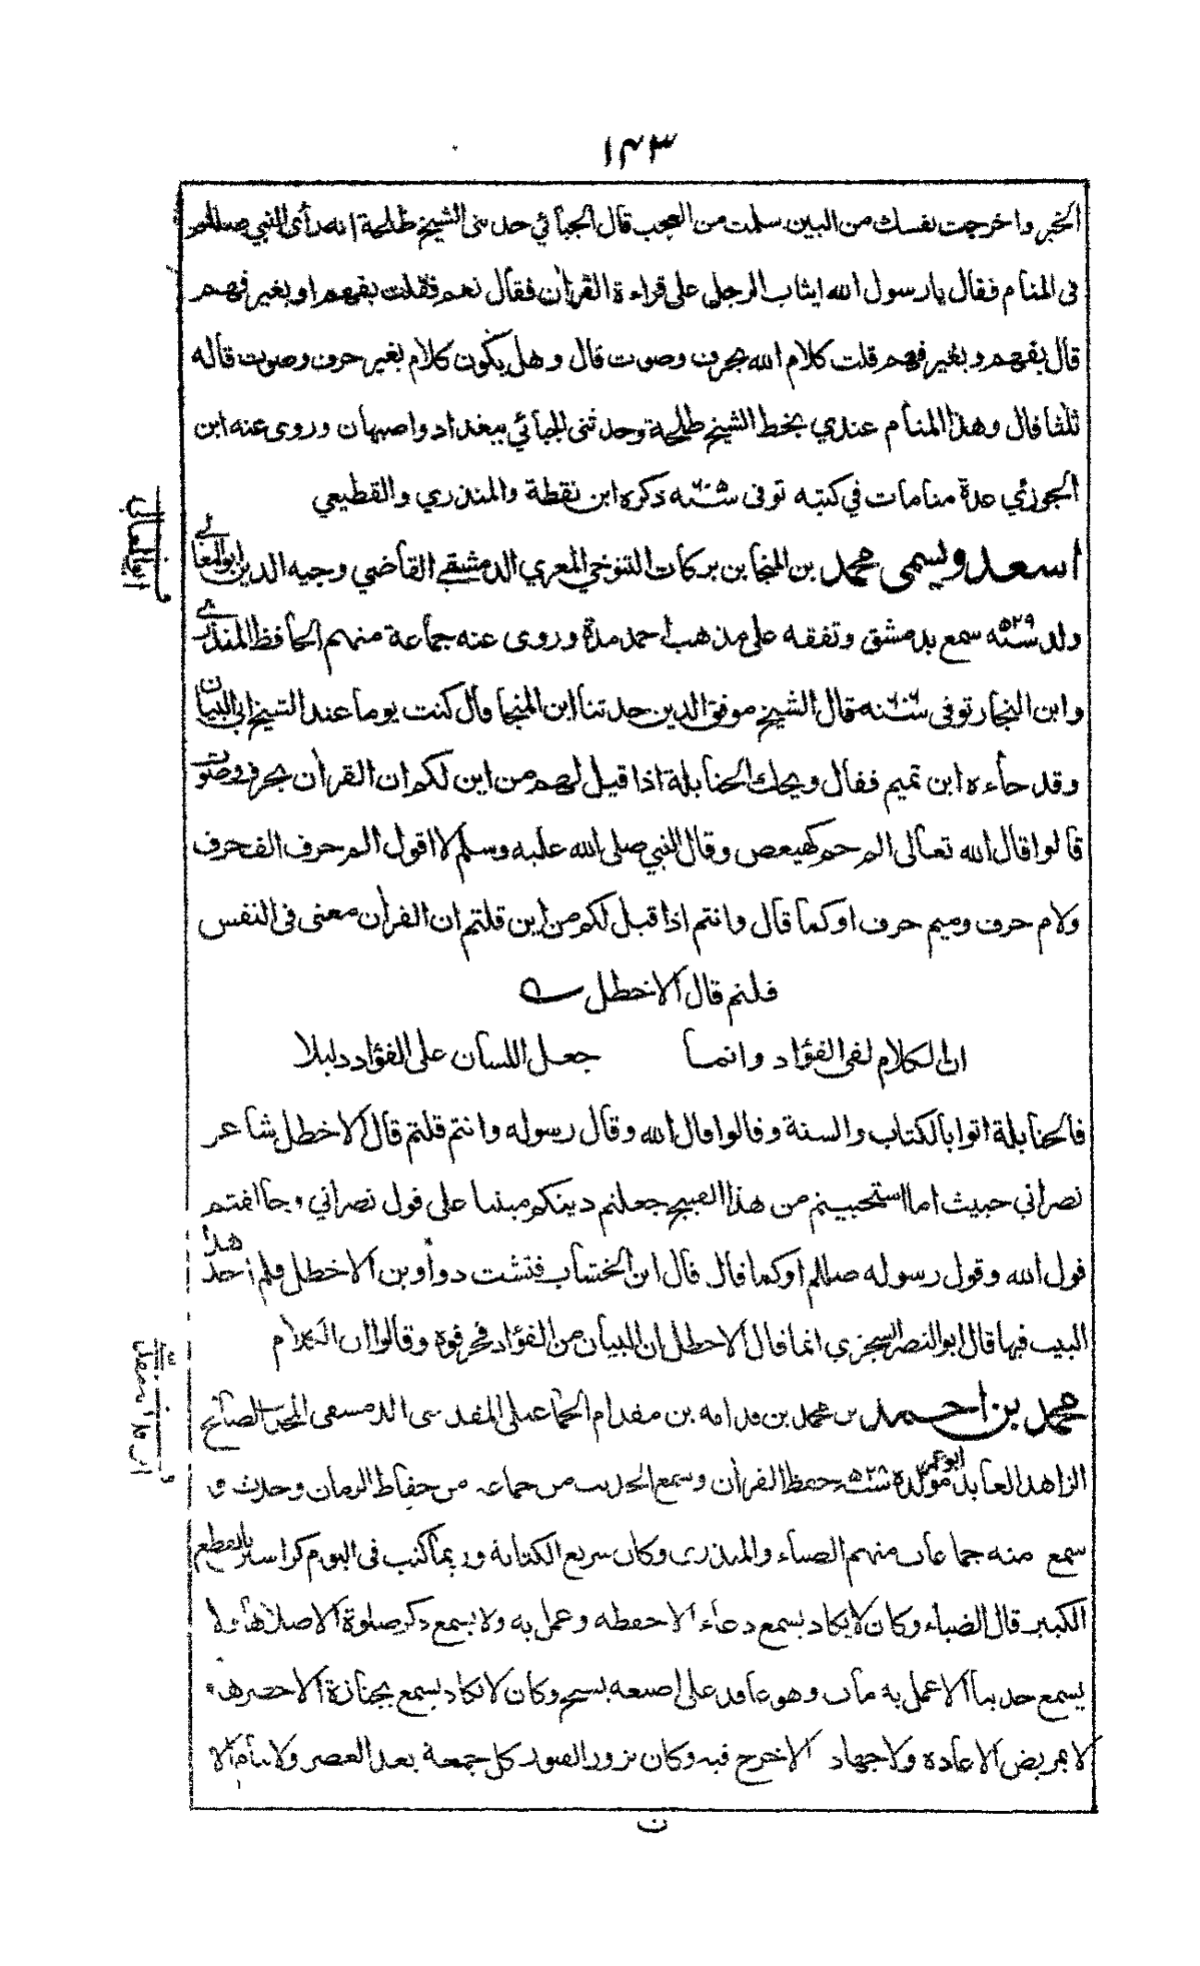 ١٤٣
الخير واخرجت نفسك من البين سلمت من العجب قال الجبائي حدثنى الشيخ طلحة انه رأى النبي صللم
فى المنام فقال يارسول الله ايثاب الرجل على قراءة القرأن فقال نعم فقلت بفهم او بغير فهم
قال بفهم و بغير فهم قلت كلام الله بحرف وصوت قال وهل يكون كلام بغير حرف وصوت قاله
ثلثا قال وهذا المنام عندي بخط الشيخ طلحة وحدثنى الجبائي ببغداد واصبهان وروى عنه ابن
الجوزي عدة منامات في كتبه توفى سنة ٦٠٥ ذكره ابن نقطة والمنذري والقطيعي
اسعد ويسمى محمد بن المنجا بن بركات التنوخي المعري الدمشقي القاضي وجيه الدين ابو المعالي
ولد سنة ٥٢٩ سمع بدمشق وتفقه على مذهب احمد مدة وروى عنه جماعة منهم الحافظ المنذري
وابن النجار توفى سنة ٦٠٦ قال الشيخ موفق الدين حدثنا ابن المنجا قال كنت يوما عند الشيخ ابي البيان
وقد جاءه ابن تميم فقال ويحك الحنابلة اذا قيل لهم من اين لكم ان القرأن بحرف وصوت
قالوا قال الله تعالى الم حم كهيعص وقال النبي صلى الله عليه وسلم لا اقول الم حرف الف حرف
ولام حرف وميم حرف او كما قال وانتم اذا قيل لكم من اين قلتم ان القرأن معنى فى النفس
قلتم قال الاخطل
ان الكلام لفى الفؤاد وانما جعل اللسان على الفؤاد دليلا
فالحنابلة اتوا بالكتاب والسنة وقالوا قال الله وقال رسوله وانتم قلتم قال الاخطل شاعر
نصراني خبيث اما استحييتم من هذا القبيح جعلتم دينكم مبنيا على قول نصراني وخالفتم
قول الله وقول رسوله صللم او كما قال قال ابن الخشاب فتشت دواوين الاخطل فلم اجد هذا
البيت فيها قال ابو النصر السجزي انما قال الاخطل ان البيان من الفؤاد فحرفوه وقالوا ان الكلام
محمد بن احمد بن محمد بن قدامه بن مقدام الجماعيلى المقدسى الدمشقى الصالح
الزاهد العابد ابو عمر مولده سنة ٥٢٨ حفظ القرأن وسمع الحديث من جماعة من حفاظ الزمان وحدث و
سمع منه جماعات منهم الضياء والمنذرى وكان سريع الكتابة وربما كتب فى اليوم كراسين بالقطع
الكبير قال الضياء وكان لا يكاد يسمع دعاء الا حفظه وعمل به ولا يسمع ذكر صلوة الا صلاها ولا
يسمع حديثا الا عمل به مات وهو عاقد على اصبعه يسبح وكان لا يكاد يسمع بجنازة الا حضرها و
لا مريض الا عاده ولا جهاد الا خرج فيه وكان يزور القبور كل جمعة بعد العصر ولا ينام الا
ف ابي المعالي